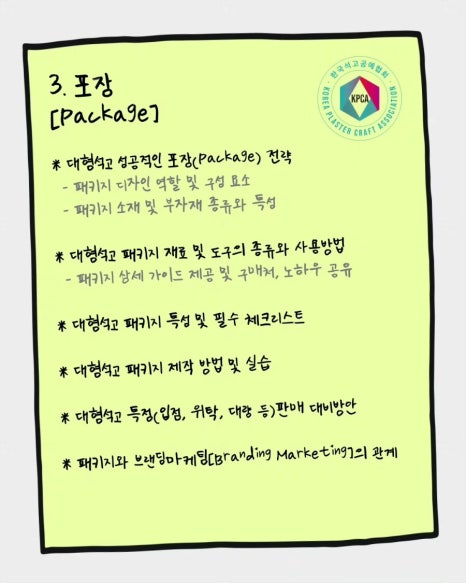 3. 포장
[Package]
한국석고공예협회
KPCA
KOREA PLASTER CRAFT ASSOCIATION
* 대형석고 성공적인 포장(Package) 전략
- 패키지 디자인 역할 및 구성 요소
- 패키지 소재 및 부자재 종류와 특성
* 대형석고 패키지 재료 및 도구의 종류와 사용방법
- 패키지 상세 가이드 제공 및 구매처, 노하우 공유
* 대형석고 패키지 특성 및 필수 체크리스트
* 대형석고 패키지 제작 방법 및 실습
* 대형석고 특정(입점, 위탁, 대량 등)판매 대비방안
* 패키지와 브랜딩마케팅[Branding Marketing]의 관계